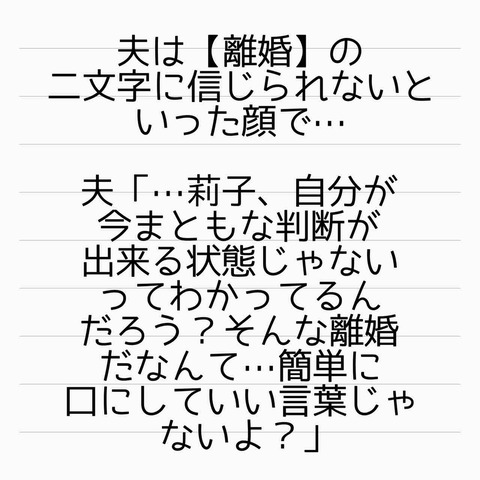 夫は【離婚】の
二文字に信じられないと
いった顔で…
夫「…莉子、自分が
今まともな判断が
出来る状態じゃない
ってわかってるん
だろう？そんな離婚
だなんて…簡単に
口にしていい言葉じゃ
ないよ？」